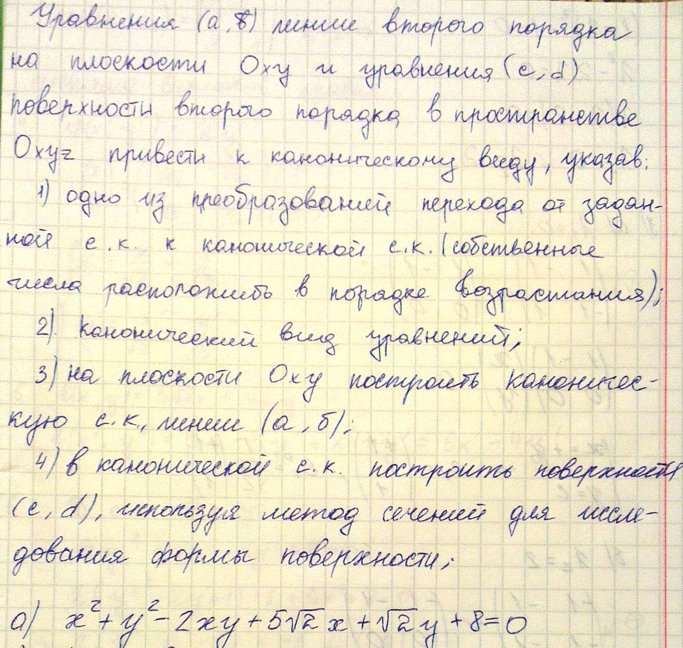 Уравнения (а, б) линии второго порядка
на плоскости Oxy и уравнения (c, d)
поверхности второго порядка в пространстве
Oxyz привести к каноническому виду, указав:
1) одно из преобразований перехода от задан-
ной с.к. к канонической с.к. (собственные
числа расположить в порядке возрастания);
2) канонический вид уравнений;
3) на плоскости Oxy построить каноничес-
кую с.к., линии (а, б);
4) в канонической с.к. построить поверхности
(c, d), используя метод сечений для иссле-
дования формы поверхности;
а) x² + y² - 2xy + 5√2x + √2y + 8 = 0